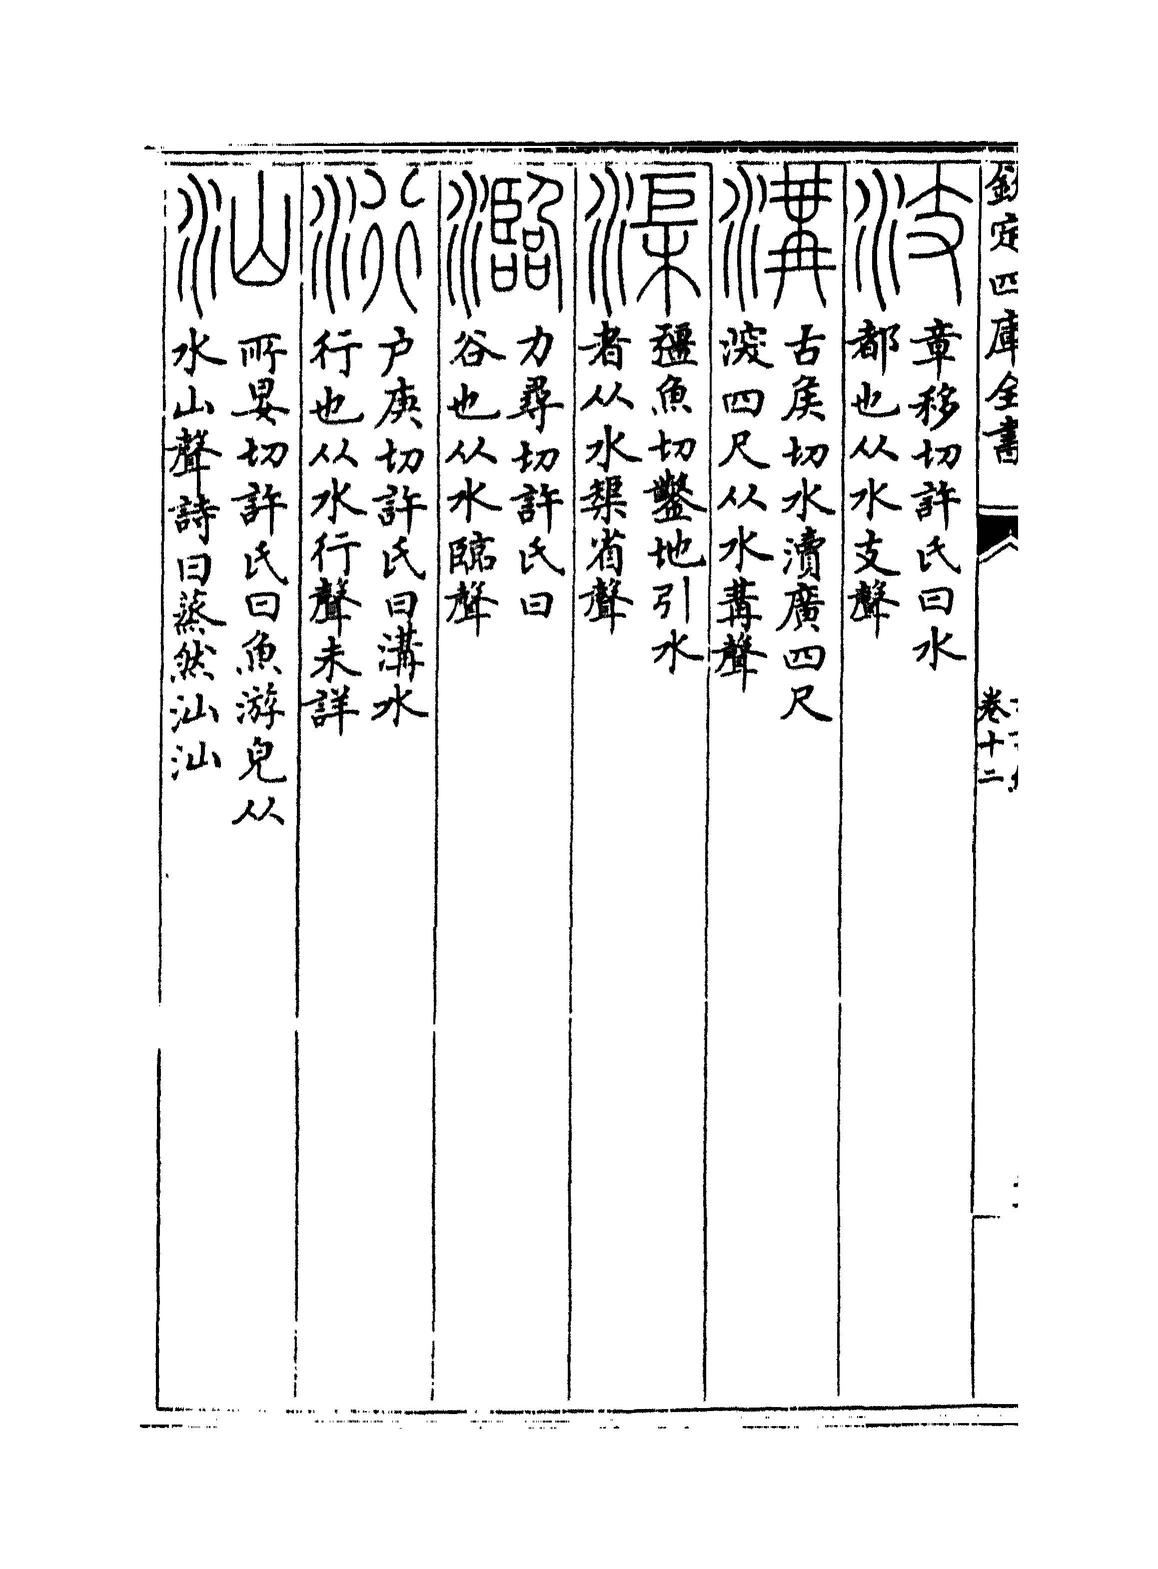 欽定四庫全書
卷十二
汥
章移切許氏曰水
都也从水支聲
溝
古矦切水瀆廣四尺
深四尺从水冓聲
渠
彊魚切鑿地引水
者从水榘省聲
瀶
力尋切許氏曰
谷也从水臨聲
洐
户庚切許氏曰溝水
行也从水行聲未詳
汕
所晏切許氏曰魚游皃从
水山聲詩曰蒸然汕汕